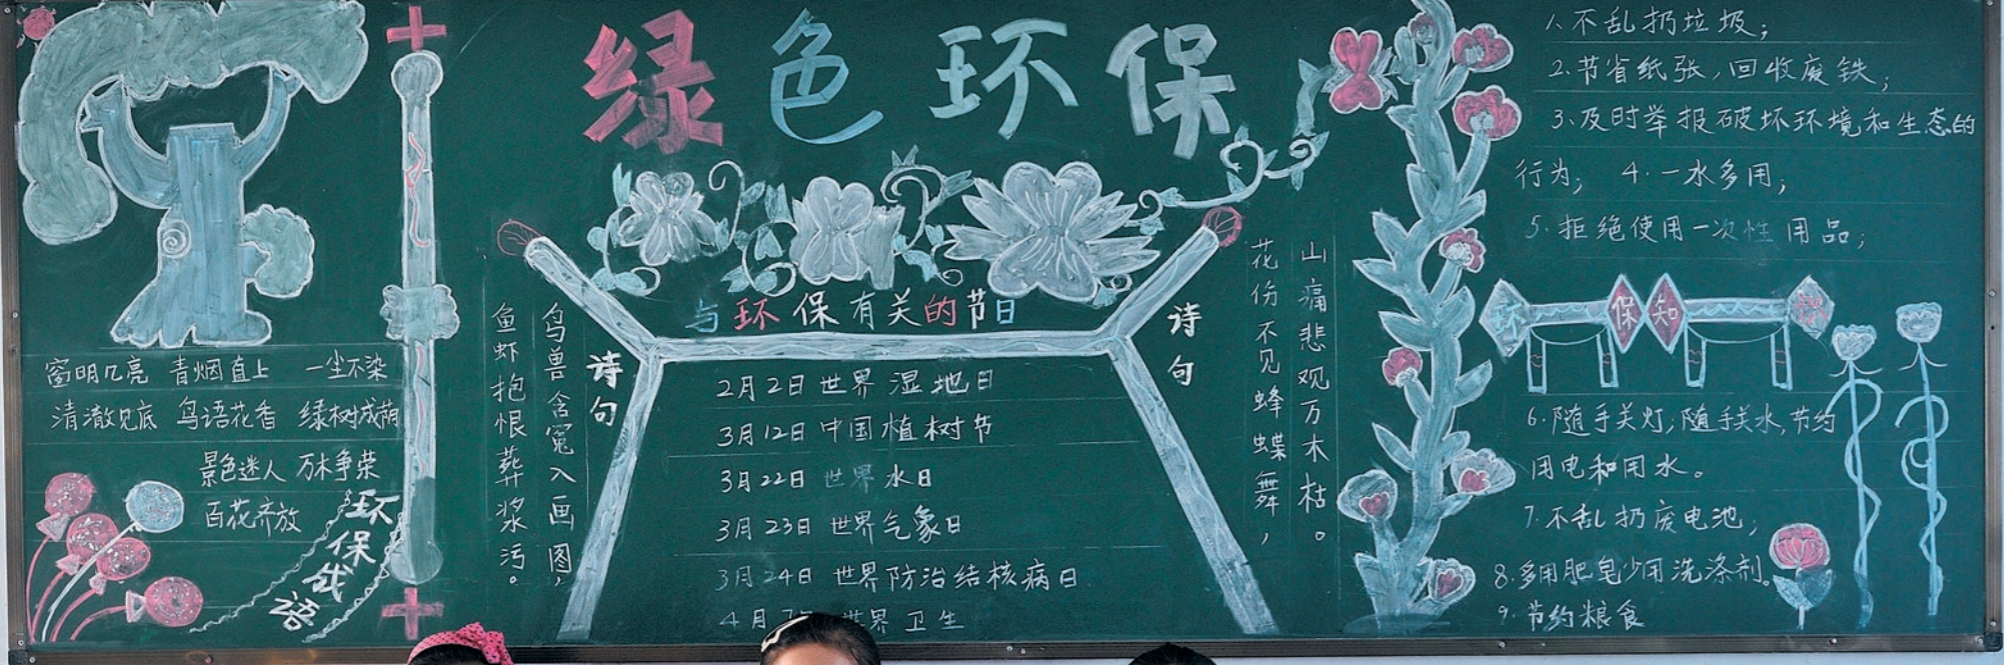 绿色环保
窗明几亮 青烟直上 一尘不染
清澈见底 鸟语花香 绿树成荫
景色迷人 万木争荣
百花齐放
环保成语
诗句
鸟兽含冤入画图，
鱼虾抱恨葬浆污。
与环保有关的节日
2月2日世界湿地日
3月12日中国植树节
3月22日世界水日
3月23日世界气象日
3月24日世界防治结核病日
4月7日世界卫生
诗句
山痛悲观万木枯。
花伤不见蜂蝶舞，
1、不乱扔垃圾；
2、节省纸张，回收废铁；
3、及时举报破坏环境和生态的
行为； 4.一水多用；
5.拒绝使用一次性用品；
环保知识
6.随手关灯；随手关水，节约
用电和用水。
7.不乱扔废电池；
8.多用肥皂少用洗涤剂。
9.节约粮食